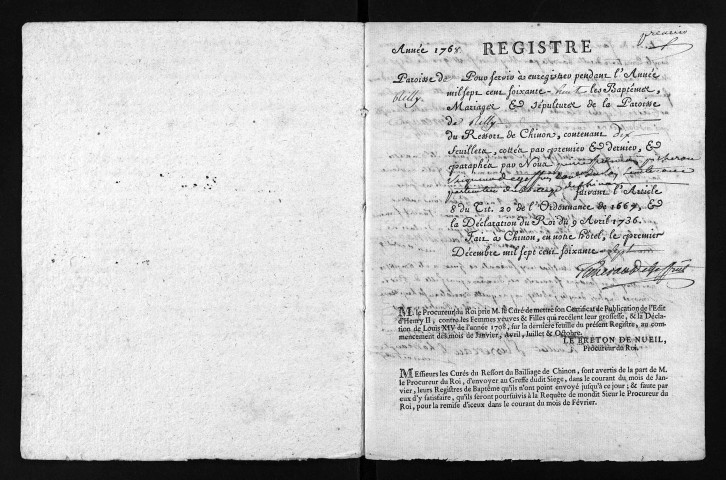 Année 1768 REGISTRE
premier
Paroisse de
Rilly
Pour servir à enregistrer pendant l'Année
mil sept cent soixante-huit les Baptêmes,
Mariages & Sépultures de la Paroisse
de Rilly
du Ressort de Chinon, contenant dix
feuillets, cottés par premier & dernier, &
paraphés par Nous
particulier
suivant l'Article
8 du Tit. 20 de l'Ordonnance de 1667, &
la Déclaration du Roi du 9 Avril 1736.
Fait à Chinon, en notre hôtel, le premier
Décembre mil sept cent soixante sept
M. le Procureur du Roi prie M. le Curé de mettre son Certificat de Publication de l'Edit
d'Henry II, contre les Femmes veuves & Filles qui recèlent leur grossesse, & la Décla-
ration de Louis XIV de l'année 1708, sur la dernière feuille du présent Registre, au com-
mencement des mois de Janvier, Avril, Juillet & Octobre.
LE BRETON DE NUEIL,
Procureur du Roi.
MEssieurs les Curés du Ressort du Bailliage de Chinon, sont avertis de la part de M.
le Procureur du Roi, d'envoyer au Greffe dudit Siege, dans le courant du mois de Jan-
vier, leurs Registres de Baptême qu'ils n'ont point envoyé jusqu'à ce jour; & faute par
eux d'y satisfaire, qu'ils seront poursuivis à la Requête de mondit Sieur le Procureur du
Roi, pour la remise d'iceux dans le courant du mois de Février.